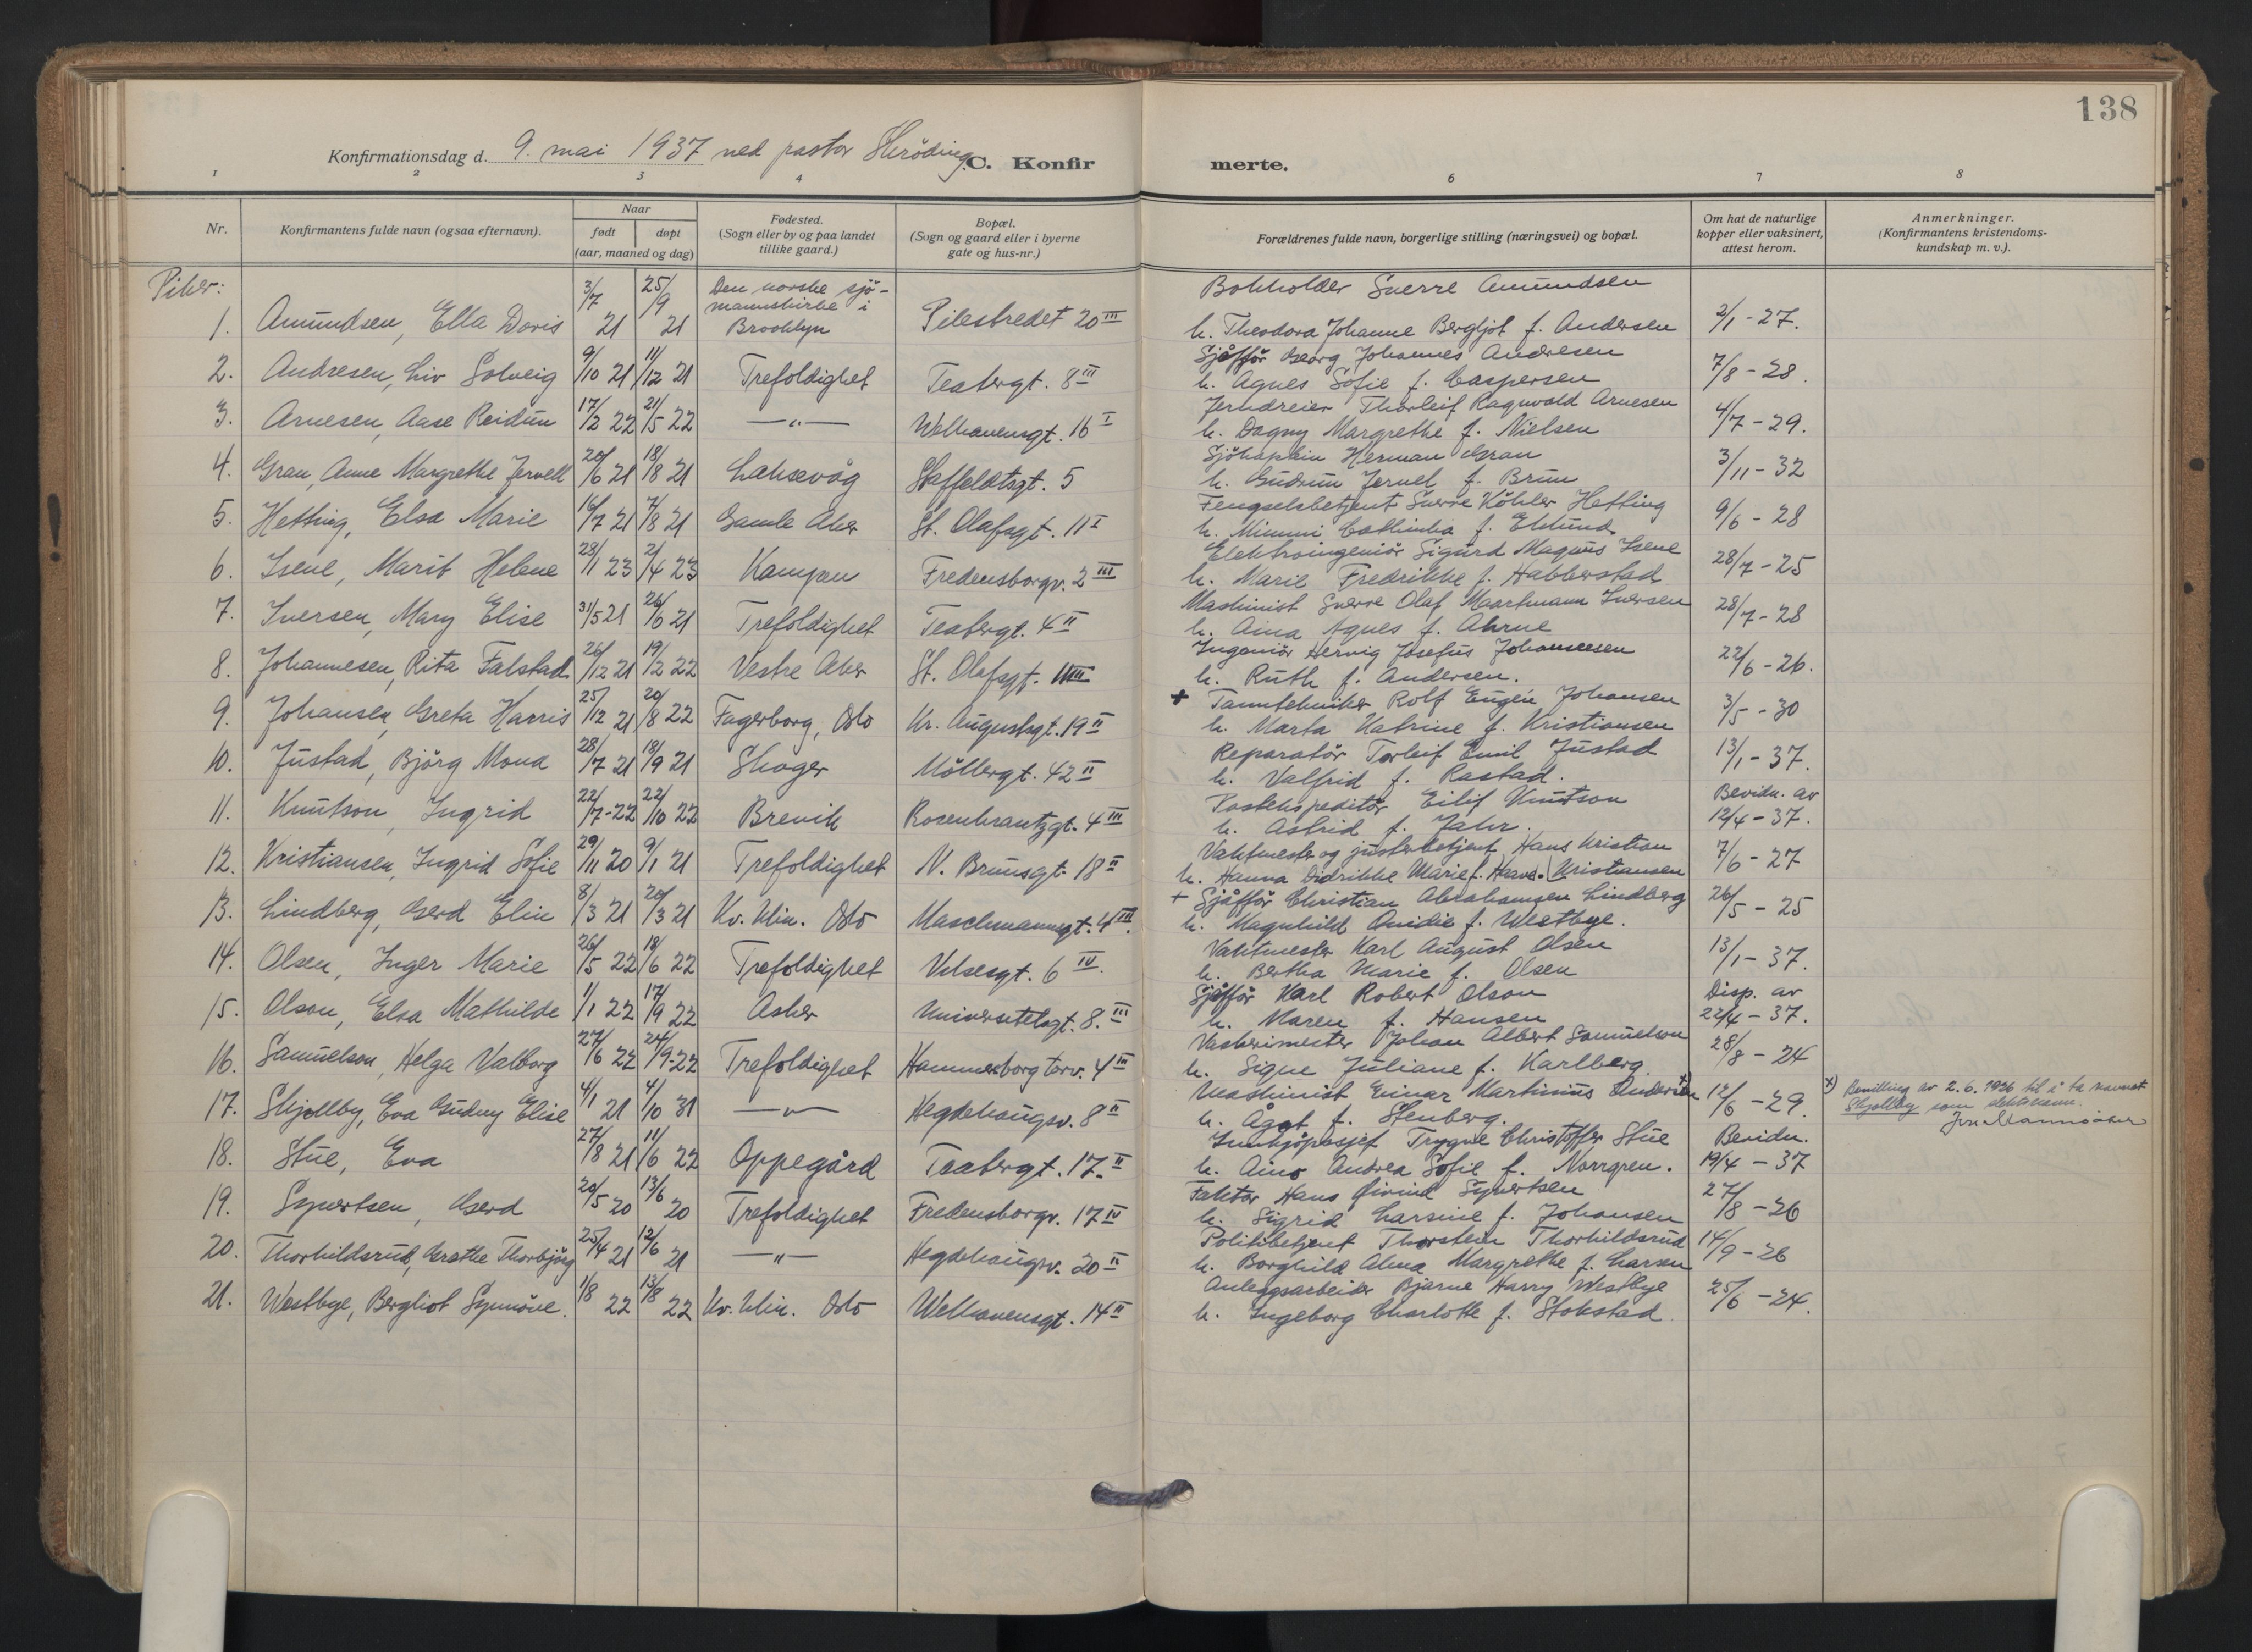 138
Konfirmationsdag d. 9. mai 1937 ved pastor C. Konfirmerte.
1 2 3 4 6 7 8
Nr.
Konfirmantens fulde navn (ogsaa efternavn).
Naar
født døpt
(aar, maaned og dag)
Fødested.
(Sogn eller by og paa landet
tillike gaard.)
Bopæl.
(Sogn og gaard eller i byerne
gate og hus-nr.)
Forældrenes fulde navn, borgerlige stilling (næringsvei) og bopæl.
Om hat de naturlige
kopper eller vaksinert,
attest herom.
Anmerkninger.
(Konfirmantens kristendoms-
kundskap m. v.).
Piker:
1. Amundsen, Ella Doris 3/7 21 25/9 21 Den norske sjö-
mannskirke i
Brooklyn Pilestredet 20 III Bokholder Sverre Amundsen
h. Theodora Johanne Bergljot f. Andersen 2/1 - 27.
2. Andresen, Liv Solveig 9/10 21 11/12 21 Trefoldighet Teatergt. 8 III Sjåffør Georg Johannes Andresen
h. Agnes Sofie f. Caspersen 7/8 - 28.
3. Arnesen, Aase Reidun 17/2 22 21/5 22 —„— Welhavensgt. 16 I Jerndreier Thorleif Ragnvald Arnesen
h. Dagny Margrethe f. Nielsen 4/7 - 29.
4. Gran, Anne Margrethe Jervell 20/6 21 18/8 21 Laksevåg Staffeldtsgt. 5 Sjökaptein Herman Gran
h. Gudrun Jervel f. Brun 3/11 - 32
5. Hetting, Elsa Marie 16/7 21 7/8 21 Gamle Aker St. Olafsgt. 11 I Fengselsbetjent Sverre Köhler Hetting
h. Mimmi Cathinka f. Eklund 9/6 - 28
6. Isene, Marit Helene 28/1 23 2/4 23 Kampen Fredensborgv. 2 III Elektroingeniör Sigurd Magnus Isene
h. Marie Fredrikke f. Habberstad 28/7 - 25
7. Iversen, Mary Elise 31/5 21 26/6 21 Trefoldighet Teatergt. 4 II Maskinist Sverre Olaf Maartmann Iversen
h. Aina Agnes f. Ahrne 28/7 - 28
8. Johannesen, Rita Falstad 26/12 21 19/2 22 Vestre Aker St. Olafsgt. Ingeniör Hervig Josefus Johannesen
h. Ruth f. Andersen. 22/6 - 26.
9. Johansen, Greta Harris 25/12 21 20/8 22 Fagerborg, Oslo Kr. Augustsgt. 19 II + Tanntekniker Rolf Eugén Johansen
h. Marta Katrine f. Kristiansen 3/5 - 30
10. Justad, Björg Mona 28/7 21 18/9 21 Skoger Möllergt. 42 II Reparatör Torleif Emil Justad
h. Valfrid f. Rastad. 13/1 - 37.
11. Knutson, Ingrid 22/7 - 22 22/10 22 Brevik Rosenkrantzgt. 4 III Postekspeditör Eilif Knutson
h. Astrid f. Jahr. Bevidn. av
12/4 - 37.
12. Kristiansen, Ingrid Sofie 29/11 20 9/1 21 Trefoldighet N. Brunsgt. 18 II Vaktmester og justerbetjent Hans Kristian
h. Hanna Didrikke Marie f. Kristiansen 7/6 - 27
13. Lindberg, Gerd Elin 8/3 21 20/3 21 Kv. klin. Oslo Maschmannsgt. 4 III. + Sjåffør Christian Abrahamsen Lindberg
h. Magnhild Ovidie f. Westbye. 26/5 - 25
14. Olsen, Inger Marie 26/5 22 18/6 22 Trefoldighet Vibesgt. 6 IV. Vaktmester Karl August Olsen
h. Bertha Marie f. Olsen 13/1 - 37.
15. Olson, Elsa Mathilde 1/1 22 17/9 22 Asker Universitetsgt. 8. III Sjåffør Karl Robert Olson
h. Maren f. Hansen Disp. av
22/4 - 37.
16. Samuelson, Helga Valborg 27/6 22 24/9 - 22 Trefoldighet Hammersborg torv. 4 III Vaskerimester Johan Albert Samuelson
h. Signe Juliane f. Karlberg 28/8 - 24
17. Skjollby, Eva Gudny Elise 4/1 21 4/10 31 —„— Hegdehaugsv. 8 II Maskinist Einar Martinius Andersen x)
h. Ågot f. Stenberg. 12/6 - 29. x) Bevilling av 2.6.1936 til å ta navnet
Skjollby som slektsnavn.
18. Stue, Eva 27/8 21 11/6 22 Oppegård Teatergt. 17. II Innkjöpssjef Trygve Christoffer Stue
h. Aino Andrea Sofie f. Norrgren. Bevidn.
19/4 - 37
19. Syvertsen, Gerd 20/5 20 13/6 20 Trefoldighet Fredensborgv. 17 IV Faktor Hans Øivind Syvertsen
h. Sigrid Larsine f. Johansen 27/8 - 26
20. Thorkildsrud, Grethe Thorbjörg 25/4 21 12/6 21 —„— Hegdehaugsv. 20 II Politibetjent Thorstein Thorkildsrud
h. Borghild Alma Margrethe f. Larsen 14/9 - 26
21. Westbye, Bergliot Synnöve. 1/8 22 13/8 22 Kv. klin. Oslo Welhavensgt. 14 II Anleggsarbeider Bjarne Harry Westbye
h. Ingeborg Charlotte f. Stokstad. 25/6 - 24.